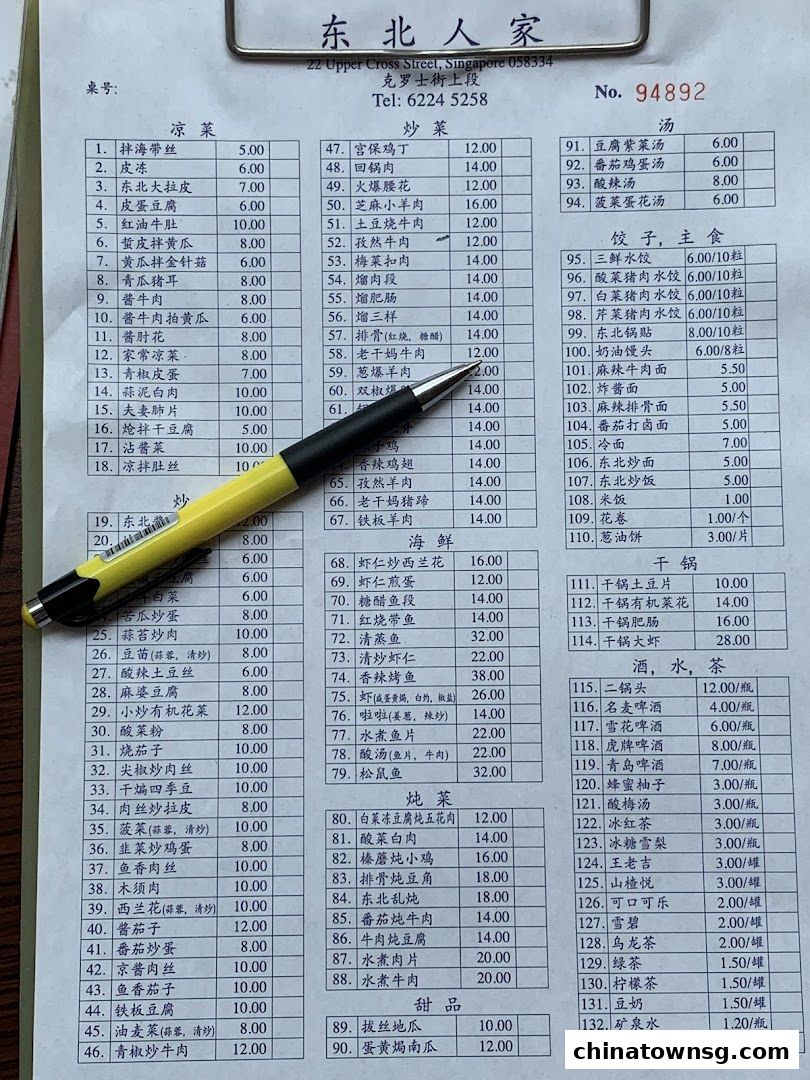 东北人家
22 Upper Cross Street, Singapore 058334
克罗士街上段
桌号:
Tel: 6224 5258
No. 94892
凉菜
1. 拌海带丝 5.00
2. 皮冻 6.00
3. 东北大拉皮 7.00
4. 皮蛋豆腐 6.00
5. 红油牛肚 10.00
6. 蜇皮拌黄瓜 8.00
7. 黄瓜拌金针菇 6.00
8. 青瓜猪耳 8.00
9. 酱牛肉 8.00
10. 酱牛肉拍黄瓜 6.00
11. 酱肘花 8.00
12. 家常凉菜 8.00
13. 青椒皮蛋 7.00
14. 蒜泥白肉 10.00
15. 夫妻肺片 10.00
16. 炝拌干豆腐 5.00
17. 沾酱菜 10.00
18. 凉拌肚丝
炒
19. 东北
20. 8.00
6.00
豆腐 6.00
白菜 8.00
苦瓜炒蛋 8.00
25. 蒜苔炒肉 10.00
26. 豆苗(蒜蓉，清炒) 8.00
27. 酸辣土豆丝 6.00
28. 麻婆豆腐 8.00
29. 小炒有机花菜 12.00
30. 酸菜粉 8.00
31. 烧茄子 10.00
32. 尖椒炒肉丝 10.00
33. 干煸四季豆 10.00
34. 肉丝炒拉皮 8.00
35. 菠菜(蒜蓉，清炒) 10.00
36. 韭菜炒鸡蛋 8.00
37. 鱼香肉丝 10.00
38. 木须肉 10.00
39. 西兰花(蒜蓉，清炒) 10.00
40. 酱茄子 12.00
41. 番茄炒蛋 8.00
42. 京酱肉丝 10.00
43. 鱼香茄子 10.00
44. 铁板豆腐 10.00
45. 油麦菜(蒜蓉，清炒) 8.00
46. 青椒炒牛肉 12.00
炒菜
47. 宫保鸡丁 12.00
48. 回锅肉 14.00
49. 火爆腰花 12.00
50. 芝麻小羊肉 16.00
51. 土豆烧牛肉 12.00
52. 孜然牛肉 12.00
53. 梅菜扣肉 14.00
54. 熘肉段 14.00
55. 熘肥肠 14.00
56. 熘三样 14.00
57. 排骨(红烧，糖醋) 14.00
58. 老干妈牛肉 12.00
59. 葱爆羊肉
60. 双椒爆 14.00
61. 14.00
14.00
子鸡 14.00
香辣鸡翅 14.00
65. 孜然羊肉 14.00
66. 老干妈猪蹄 14.00
67. 铁板羊肉 14.00
海鲜
68. 虾仁炒西兰花 16.00
69. 虾仁煎蛋 12.00
70. 糖醋鱼段 14.00
71. 红烧带鱼 14.00
72. 清蒸鱼 32.00
73. 清炒虾仁 22.00
74. 香辣烤鱼 38.00
75. 虾(咸蛋黄焗，白灼，椒盐) 26.00
76. 啦啦(姜葱，辣炒) 14.00
77. 水煮鱼片 22.00
78. 酸汤(鱼片，牛肉) 22.00
79. 松鼠鱼 32.00
炖菜
80. 白菜冻豆腐炖五花肉 12.00
81. 酸菜白肉 14.00
82. 榛蘑炖小鸡 16.00
83. 排骨炖豆角 18.00
84. 东北乱炖 18.00
85. 番茄炖牛肉 14.00
86. 牛肉炖豆腐 14.00
87. 水煮肉片 20.00
88. 水煮牛肉 20.00
甜品
89. 拔丝地瓜 10.00
90. 蛋黄焗南瓜 12.00
汤
91. 豆腐紫菜汤 6.00
92. 番茄鸡蛋汤 6.00
93. 酸辣汤 8.00
94. 菠菜蛋花汤 6.00
饺子，主食
95. 三鲜水饺 6.00/10粒
96. 酸菜猪肉水饺 6.00/10粒
97. 白菜猪肉水饺 6.00/10粒
98. 芹菜猪肉水饺 6.00/10粒
99. 东北锅贴 8.00/10粒
100. 奶油馒头 6.00/8粒
101. 麻辣牛肉面 5.50
102. 炸酱面 5.00
103. 麻辣排骨面 5.50
104. 番茄打卤面 5.00
105. 冷面 7.00
106. 东北炒面 5.00
107. 东北炒饭 5.00
108. 米饭 1.00
109. 花卷 1.00/个
110. 葱油饼 3.00/片
干锅
111. 干锅土豆片 10.00
112. 干锅有机菜花 14.00
113. 干锅肥肠 16.00
114. 干锅大虾 28.00
酒，水，茶
115. 二锅头 12.00/瓶
116. 名麦啤酒 4.00/瓶
117. 雪花啤酒 6.00/瓶
118. 虎牌啤酒 8.00/瓶
119. 青岛啤酒 7.00/瓶
120. 蜂蜜柚子 3.00/瓶
121. 酸梅汤 3.00/瓶
122. 冰红茶 3.00/瓶
123. 冰糖雪梨 3.00/瓶
124. 王老吉 3.00/罐
125. 山楂悦 3.00/罐
126. 可口可乐 2.00/罐
127. 雪碧 2.00/罐
128. 乌龙茶 2.00/罐
129. 绿茶 1.50/罐
130. 柠檬茶 1.50/罐
131. 豆奶 1.50/罐
132. 矿泉水 1.20/瓶
chinatownsg.com